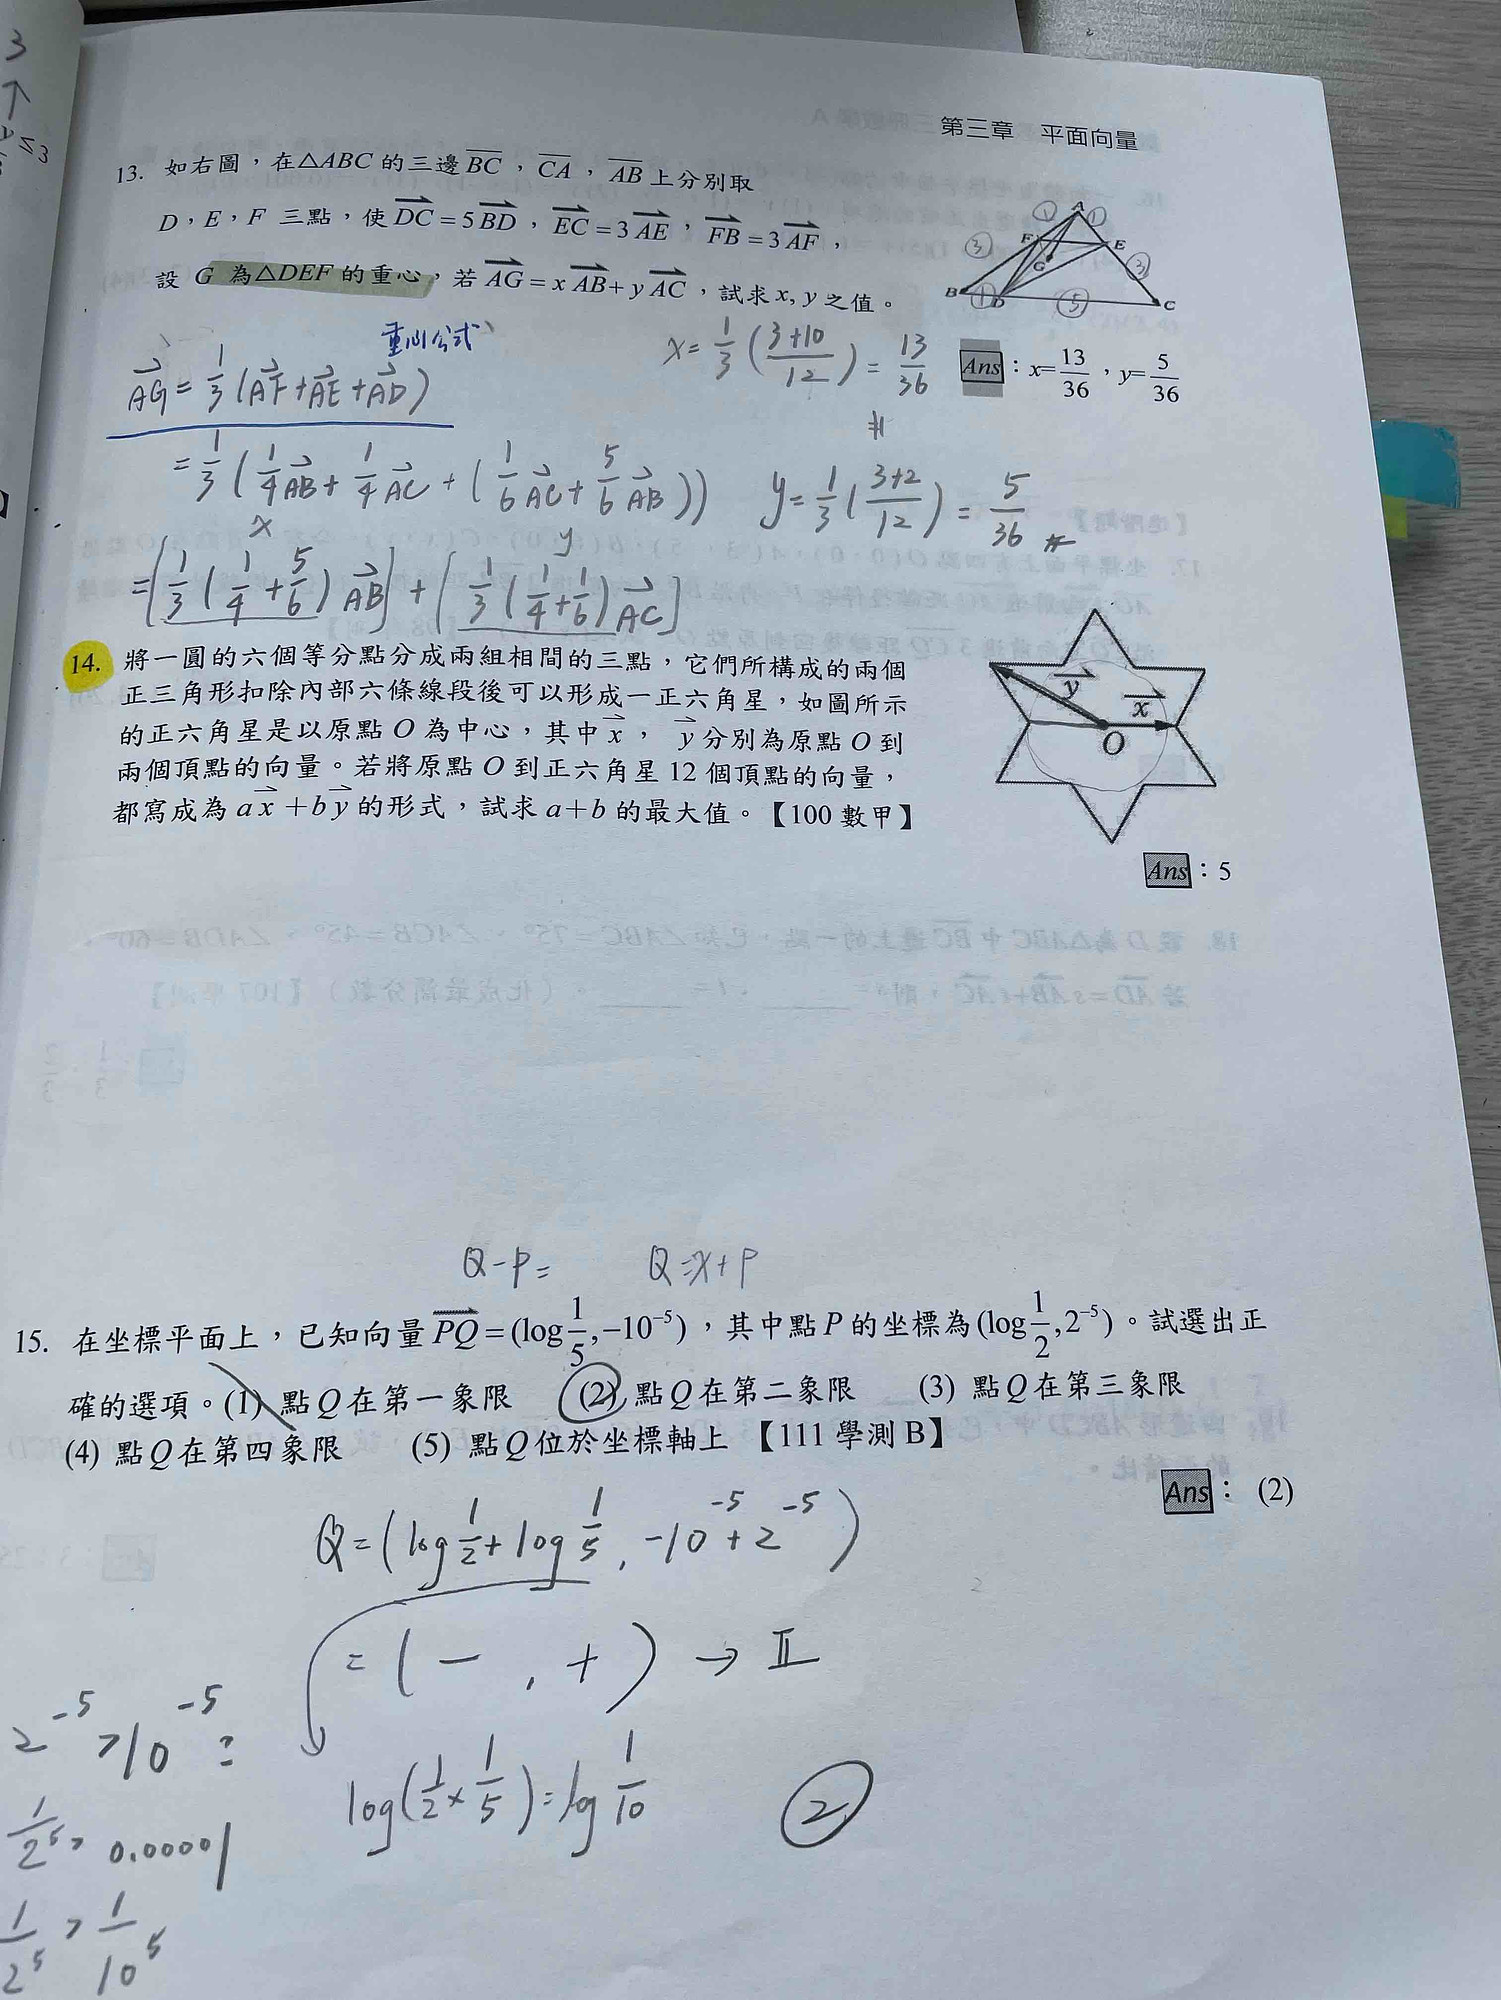 3
↑
≤3
第三章 平面向量
13. 如右圖，在△ABC 的三邊 BC，CA，AB 上分別取
D，E，F 三點，使 DC=5BD，EC=3AE，FB=3AF，
設 G 為△DEF 的重心，若 AG=xAB+yAC，試求 x, y 之值。
A
① ①
③ F E ③
G
B ① D ⑤ C
Ans：x=13/36，y=5/36
重心公式
AG = 1/3 (AF+AE+AD)
= 1/3 (1/4 AB + 1/4 AC + (1/6 AC + 5/6 AB))
x y
= [1/3 (1/4 + 5/6) AB] + [1/3 (1/4 + 1/6) AC]
x = 1/3 (3+10/12) = 13/36
y = 1/3 (3+2/12) = 5/36
14. 將一圓的六個等分點分成兩組相間的三點，它們所構成的兩個
正三角形扣除內部六條線段後可以形成一正六角星，如圖所示
的正六角星是以原點 O 為中心，其中 x， y 分別為原點 O 到
兩個頂點的向量。若將原點 O 到正六角星 12 個頂點的向量，
都寫成為 ax+by 的形式，試求 a+b 的最大值。【100 數甲】
y x
O
Ans：5
Q-P= Q=x+P
15. 在坐標平面上，已知向量 PQ=(log 1/5, -10⁻⁵)，其中點 P 的坐標為(log 1/2, 2⁻⁵)。試選出正
確的選項。(1) 點 Q 在第一象限 (2) 點 Q 在第二象限 (3) 點 Q 在第三象限
(4) 點 Q 在第四象限 (5) 點 Q 位於坐標軸上 【111 學測 B】
Ans： (2)
Q=(log 1/2 + log 1/5, -10⁻⁵+2⁻⁵)
= (-, +) → II
log(1/2 × 1/5) = log 1/10
②
2⁻⁵ > 10⁻⁵ =
1/2⁵ > 0.00001
1/2⁵ > 1/10⁵